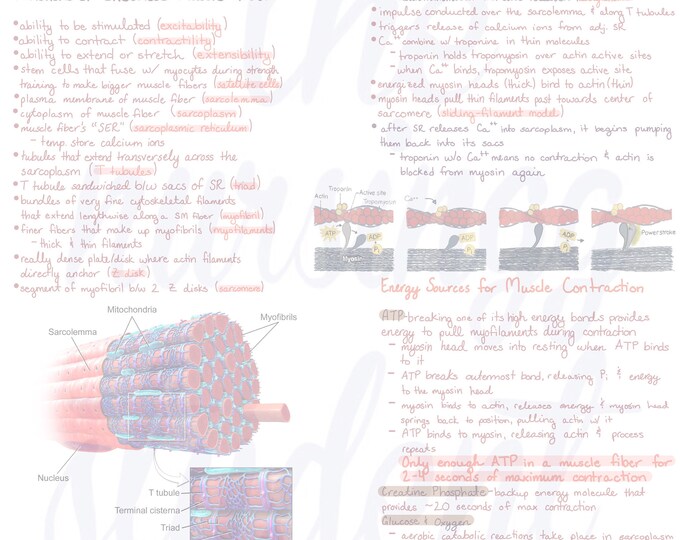 •ability to be stimulated (excitability)
•ability to contract (contractility)
•ability to extend or stretch (extensibility)
•stem cells that fuse w/ myocytes during strength
training to make bigger muscle fibers (satellite cells)
•plasma membrane of muscle fiber (sarcolemma)
•cytoplasm of muscle fiber (sarcoplasm)
•muscle fiber's "SER" (sarcoplasmic reticulum)
- temp. store calcium ions
•tubules that extend transversely across the
sarcoplasm (T tubules)
•T tubule sandwiched b/w sacs of SR (triad)
•bundles of very fine cytoskeletal filaments
that extend lengthwise along a SM fiber (myofibril)
•finer fibers that make up myofibrils (myofilaments)
- thick & thin filaments
•really dense plate/disk where actin filaments
directly anchor (Z disk)
•segment of myofibril b/w 2 Z disks (sarcomere)
Mitochondria
Sarcolemma
Myofibrils
Nucleus
T tubule
Terminal cisterna
Triad
•impulse conducted over the sarcolemma & along T tubules
•triggers release of calcium ions from adj. SR
•Ca⁺⁺ combine w/ troponine in thin molecules
- troponin holds tropomyosin over actin active sites
when Ca⁺⁺ binds, tropomyosin exposes active site
•energized myosin heads (thick) bind to actin (thin)
•myosin heads pull thin filaments past towards center of
sarcomere (sliding-filament model)
•after SR releases Ca⁺⁺ into sarcoplasm, it begins pumping
them back into its sacs
- troponin w/o Ca⁺⁺ means no contraction & actin is
blocked from myosin again
Troponin
Active site
Actin
Tropomyosin
Ca⁺⁺
ATP
ADP
Pᵢ
ADP
Pᵢ
ADP
Pᵢ
Power stroke
Myosin
Energy Sources for Muscle Contraction
ATP-breaking one of its high energy bonds provides
energy to pull myofilaments during contraction
- myosin head moves into resting when ATP binds
to it
- ATP breaks outermost bond, releasing Pᵢ & energy
to the myosin head
- myosin binds to actin, releases energy & myosin head
springs back to position, pulling actin w/ it
- ATP binds to myosin, releasing actin & process
repeats
Only enough ATP in a muscle fiber for
2-4 seconds of maximum contraction
Creatine Phosphate-backup energy molecule that
provides ~20 seconds of max contraction
Glucose & Oxygen
- aerobic catabolic reactions take place in sarcoplasm